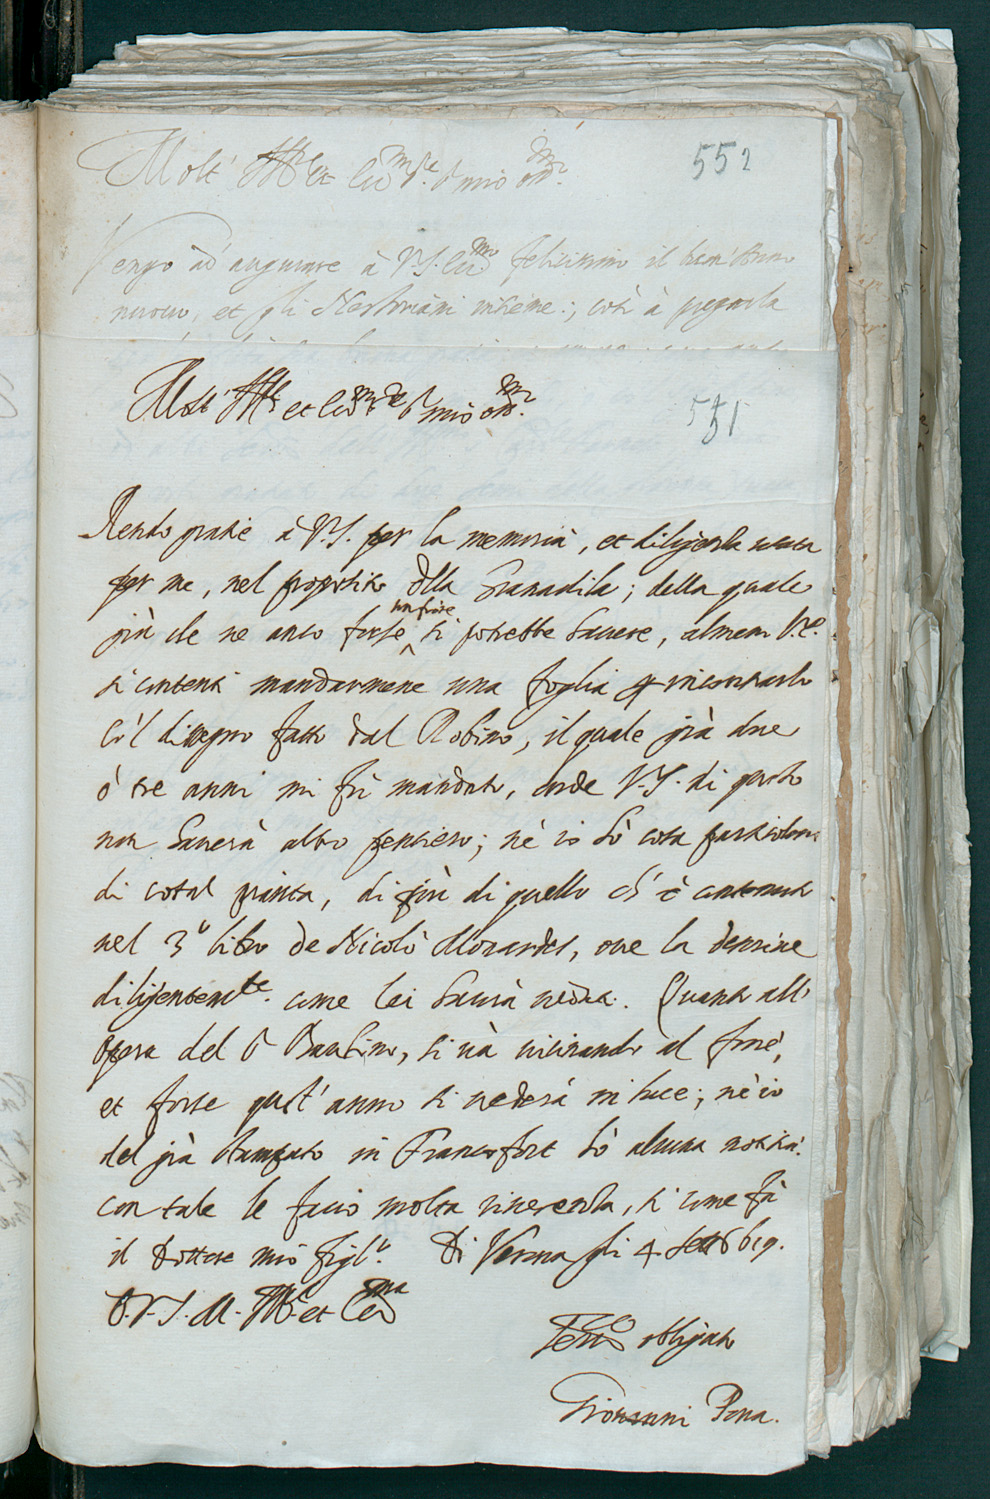 Molt' Ill.re et Ecc.mo S.re S.r mio oss.mo
552
Vengo ad augurare à V.S. Ecc.ma felicissimo il buon Anno
nuovo, et gli Nestoriani insieme; così à pregarla
Molt' Ill.re et Ecc.mo S.re S.r mio oss.mo
551
Rendo gratie à V.S. per la memoria, et diligenza usata
per me, nel proposito della Granadila; della quale
già che ne anco forse un fiore si potrebbe havere, almen V.E.
si contenti mandarmene una foglia per incontrarla
co'l disegno fatto dal Robino, il quale già due
ò tre anni mi fù mandato, onde V.S. di questo
non haverà altro pensiero; nè io sò cosa particolare
di cotal pianta, di più di quello ch'è contenuto
nel 3.o libro de Nicolò Monardes, ove la descrive
diligentem.te come lei haverà veduto. Quanto all'
opera del S.r Bauhino, si và vicinando al fine,
et forse quest'anno si vederà in luce; nè io
del già stampato in Francofort hò alcuna notitia.
con tale le faccio molta riverenza, sì come fà
il Dottore mio figl.o. Di Verona gli 4 Sett. 1619.
D. V. S. M. Ill.re et Ecc.ma
Ser.re oblig.to
Giovanni Pona.